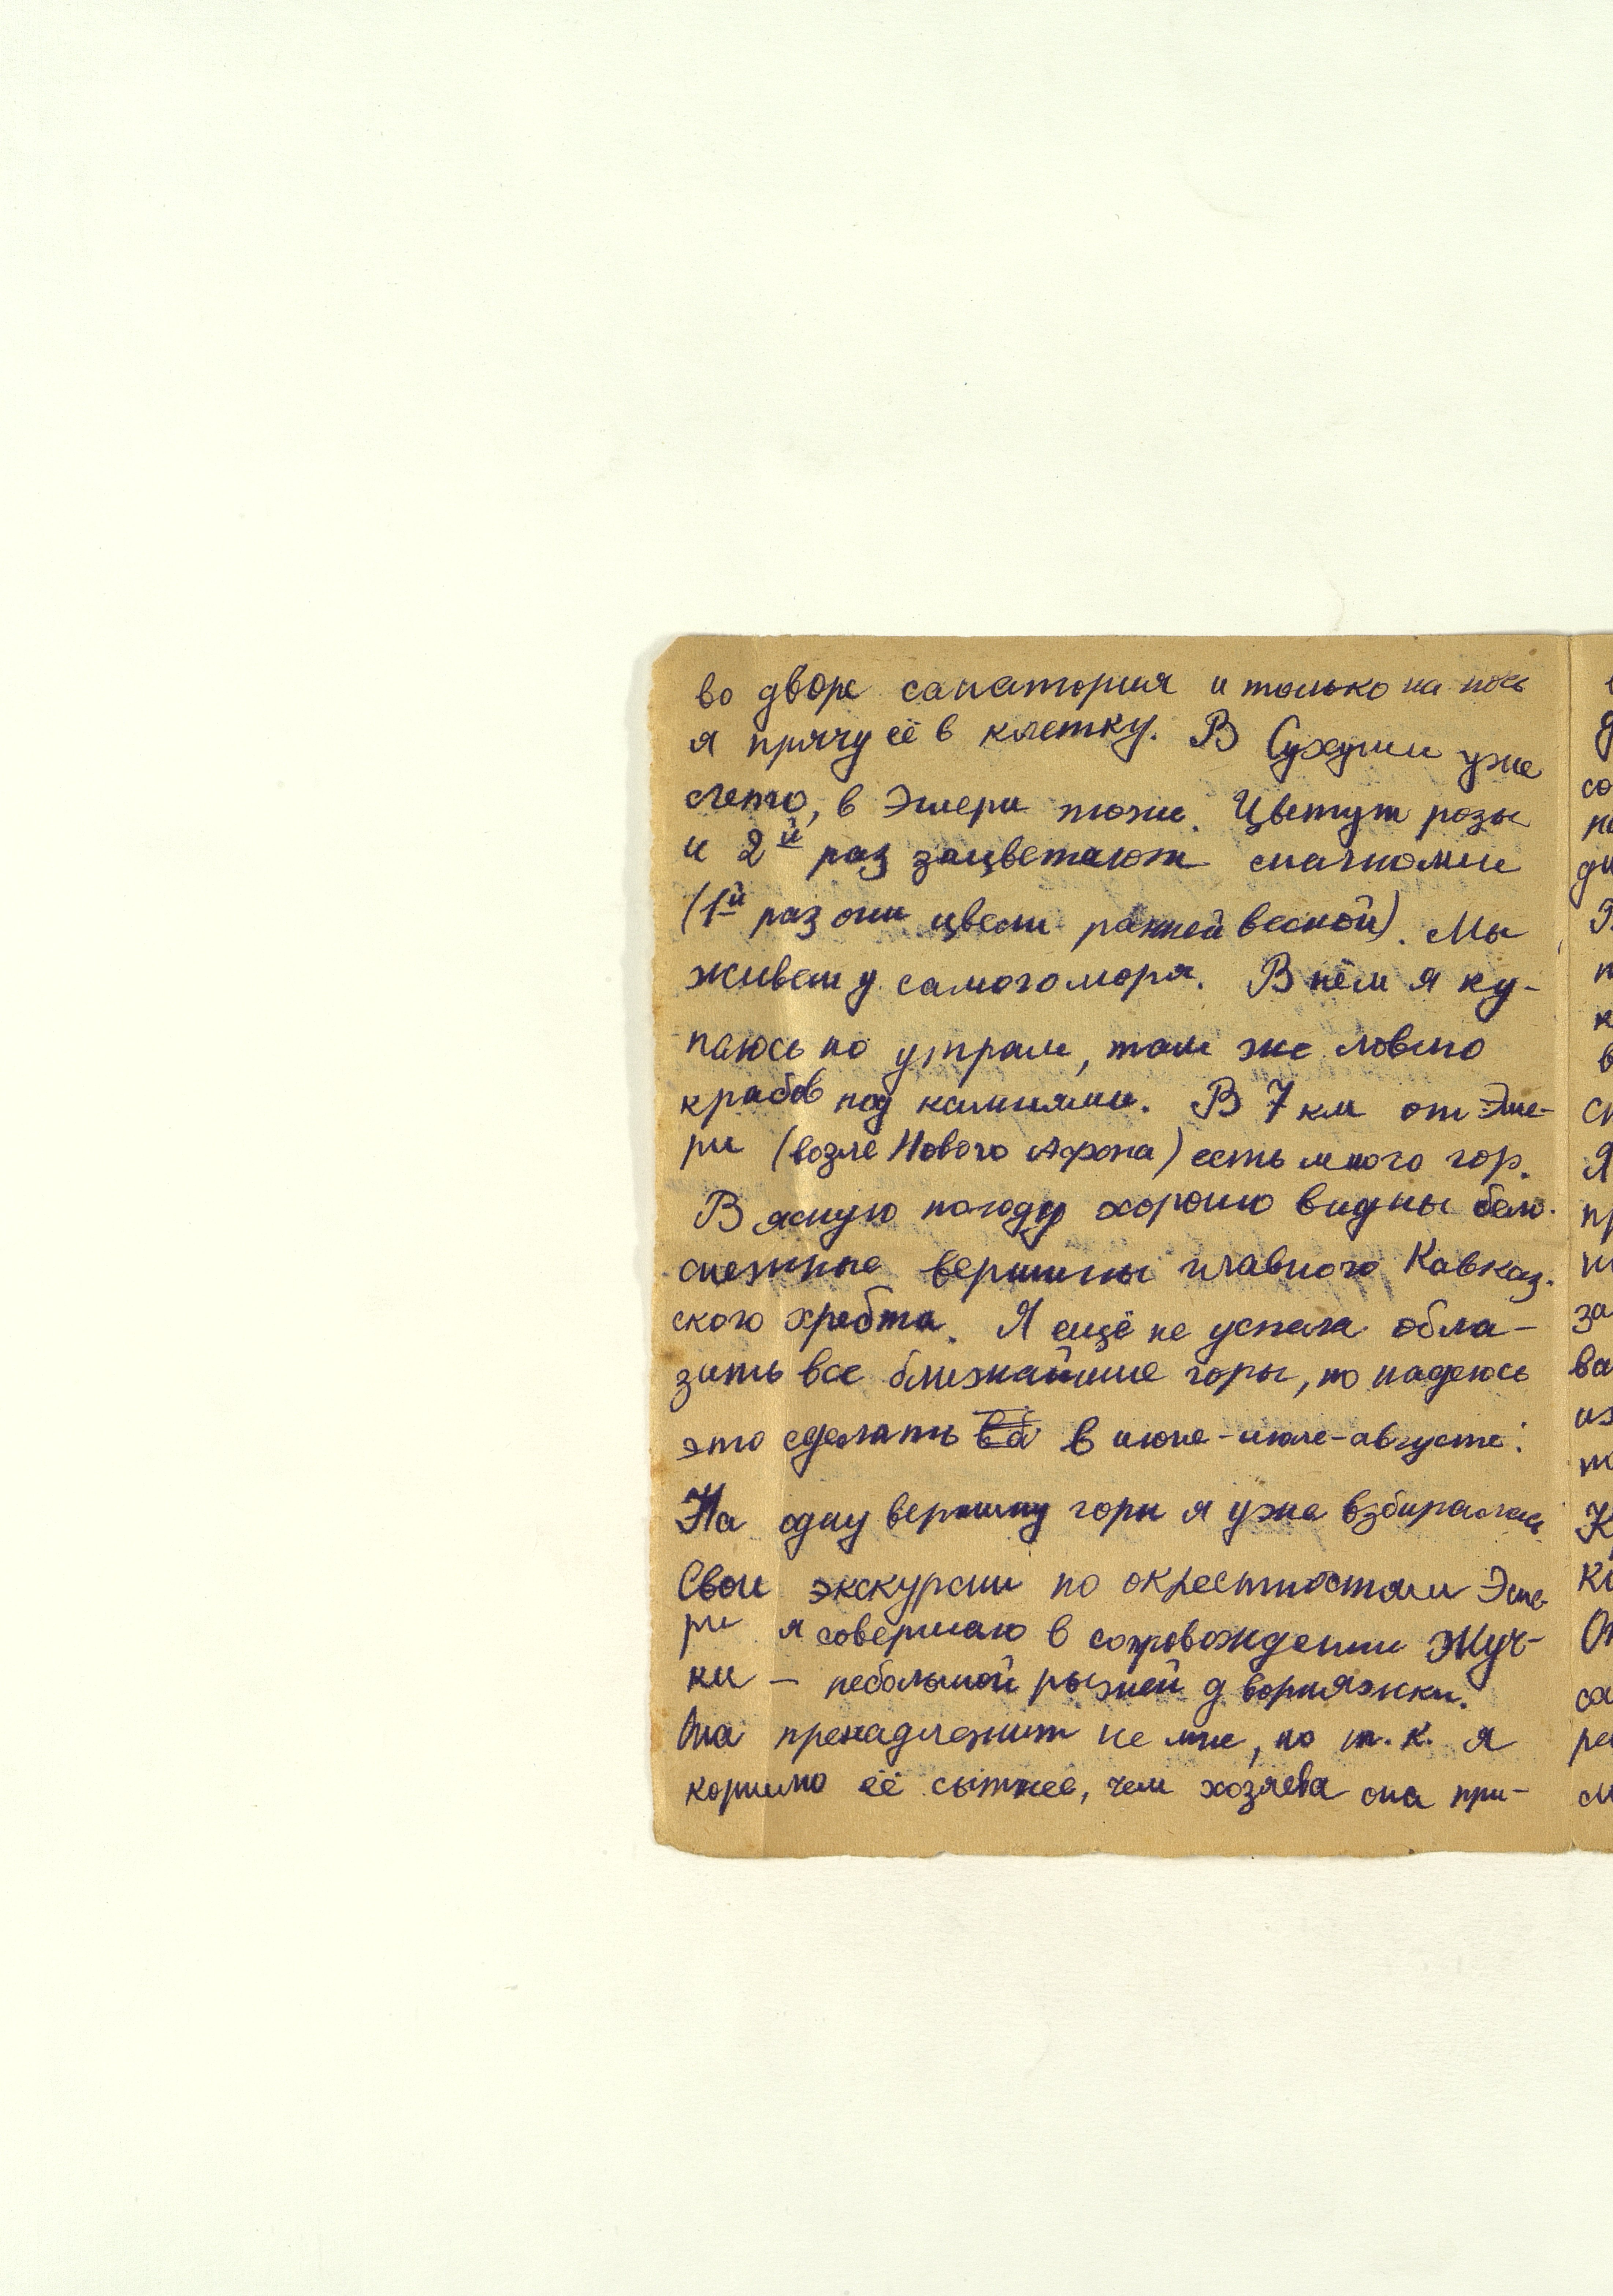 во дворе санатория и только на ночь
я прячу её в клетку. В Сухуми уже
лето, в Эшери тоже. Цветут розы
и 2й раз зацветают
(1й раз они цвели ранней весной). Мы
живем у самого моря. В нём я ку-
паюсь по утрам, там же ловлю
крабов под камнями. В 7 км от Эше-
ри (возле Нового Афона) есть много гор.
В ясную погоду хорошо видны бело-
снежные вершины главного Кавказ-
ского хребта. Я ещё не успела обла-
зить все ближайшие горы, но надеюсь
это сделать в июне-июле-августе.
На одну вершину горы я уже взбиралась.
Свои экскурсии по окрестностям Эше-
ри я совершаю в сопровождении Жуч-
ки — небольшой рыжей дворняжки.
Она пренадлежит не мне, но т.к. я
кормлю её сытнее, чем хозяева она при-